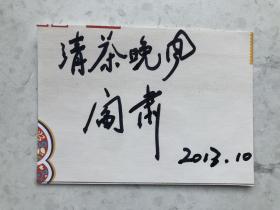 清茶晚风
阎肃
2013.10